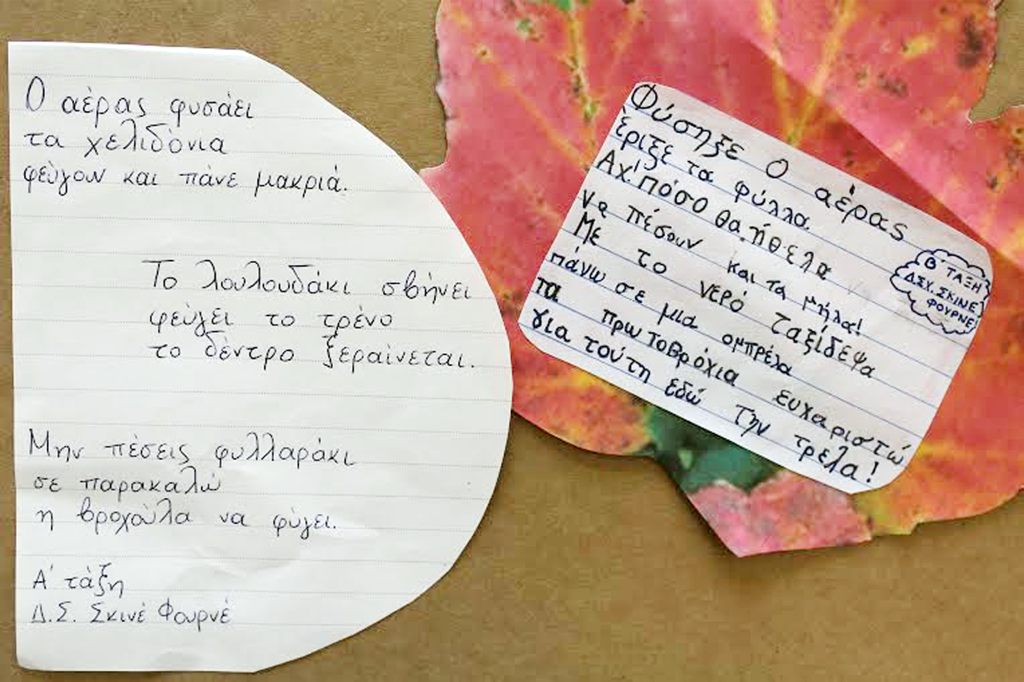 Ο αέρας φυσάει
τα χελιδόνια
φεύγουν και πάνε μακριά.
Το λουλουδάκι σβήνει
φεύγει το τρένο
το δέντρο ξεραίνεται.
Μην πέσεις φυλλαράκι
σε παρακαλώ
η βροχούλα να φύγει.
Α' τάξη
Δ.Σ. Σκινέ Φουρνέ
Φύσηξε Ο αέρας
έριξε τα φύλλα
Αχ! πόσο θα ήθελα
να πέσουν και τα μήλα!
Με το νερό ταξίδεψα
πάνω σε μια ομπρέλα
τα πρωτοβρόχια ευχαριστώ
για τούτη εδώ την τρελα!
Β' ΤΑΞΗ
Δ.ΣΧ. ΣΚΙΝΕ
ΦΟΥΡΝΕ